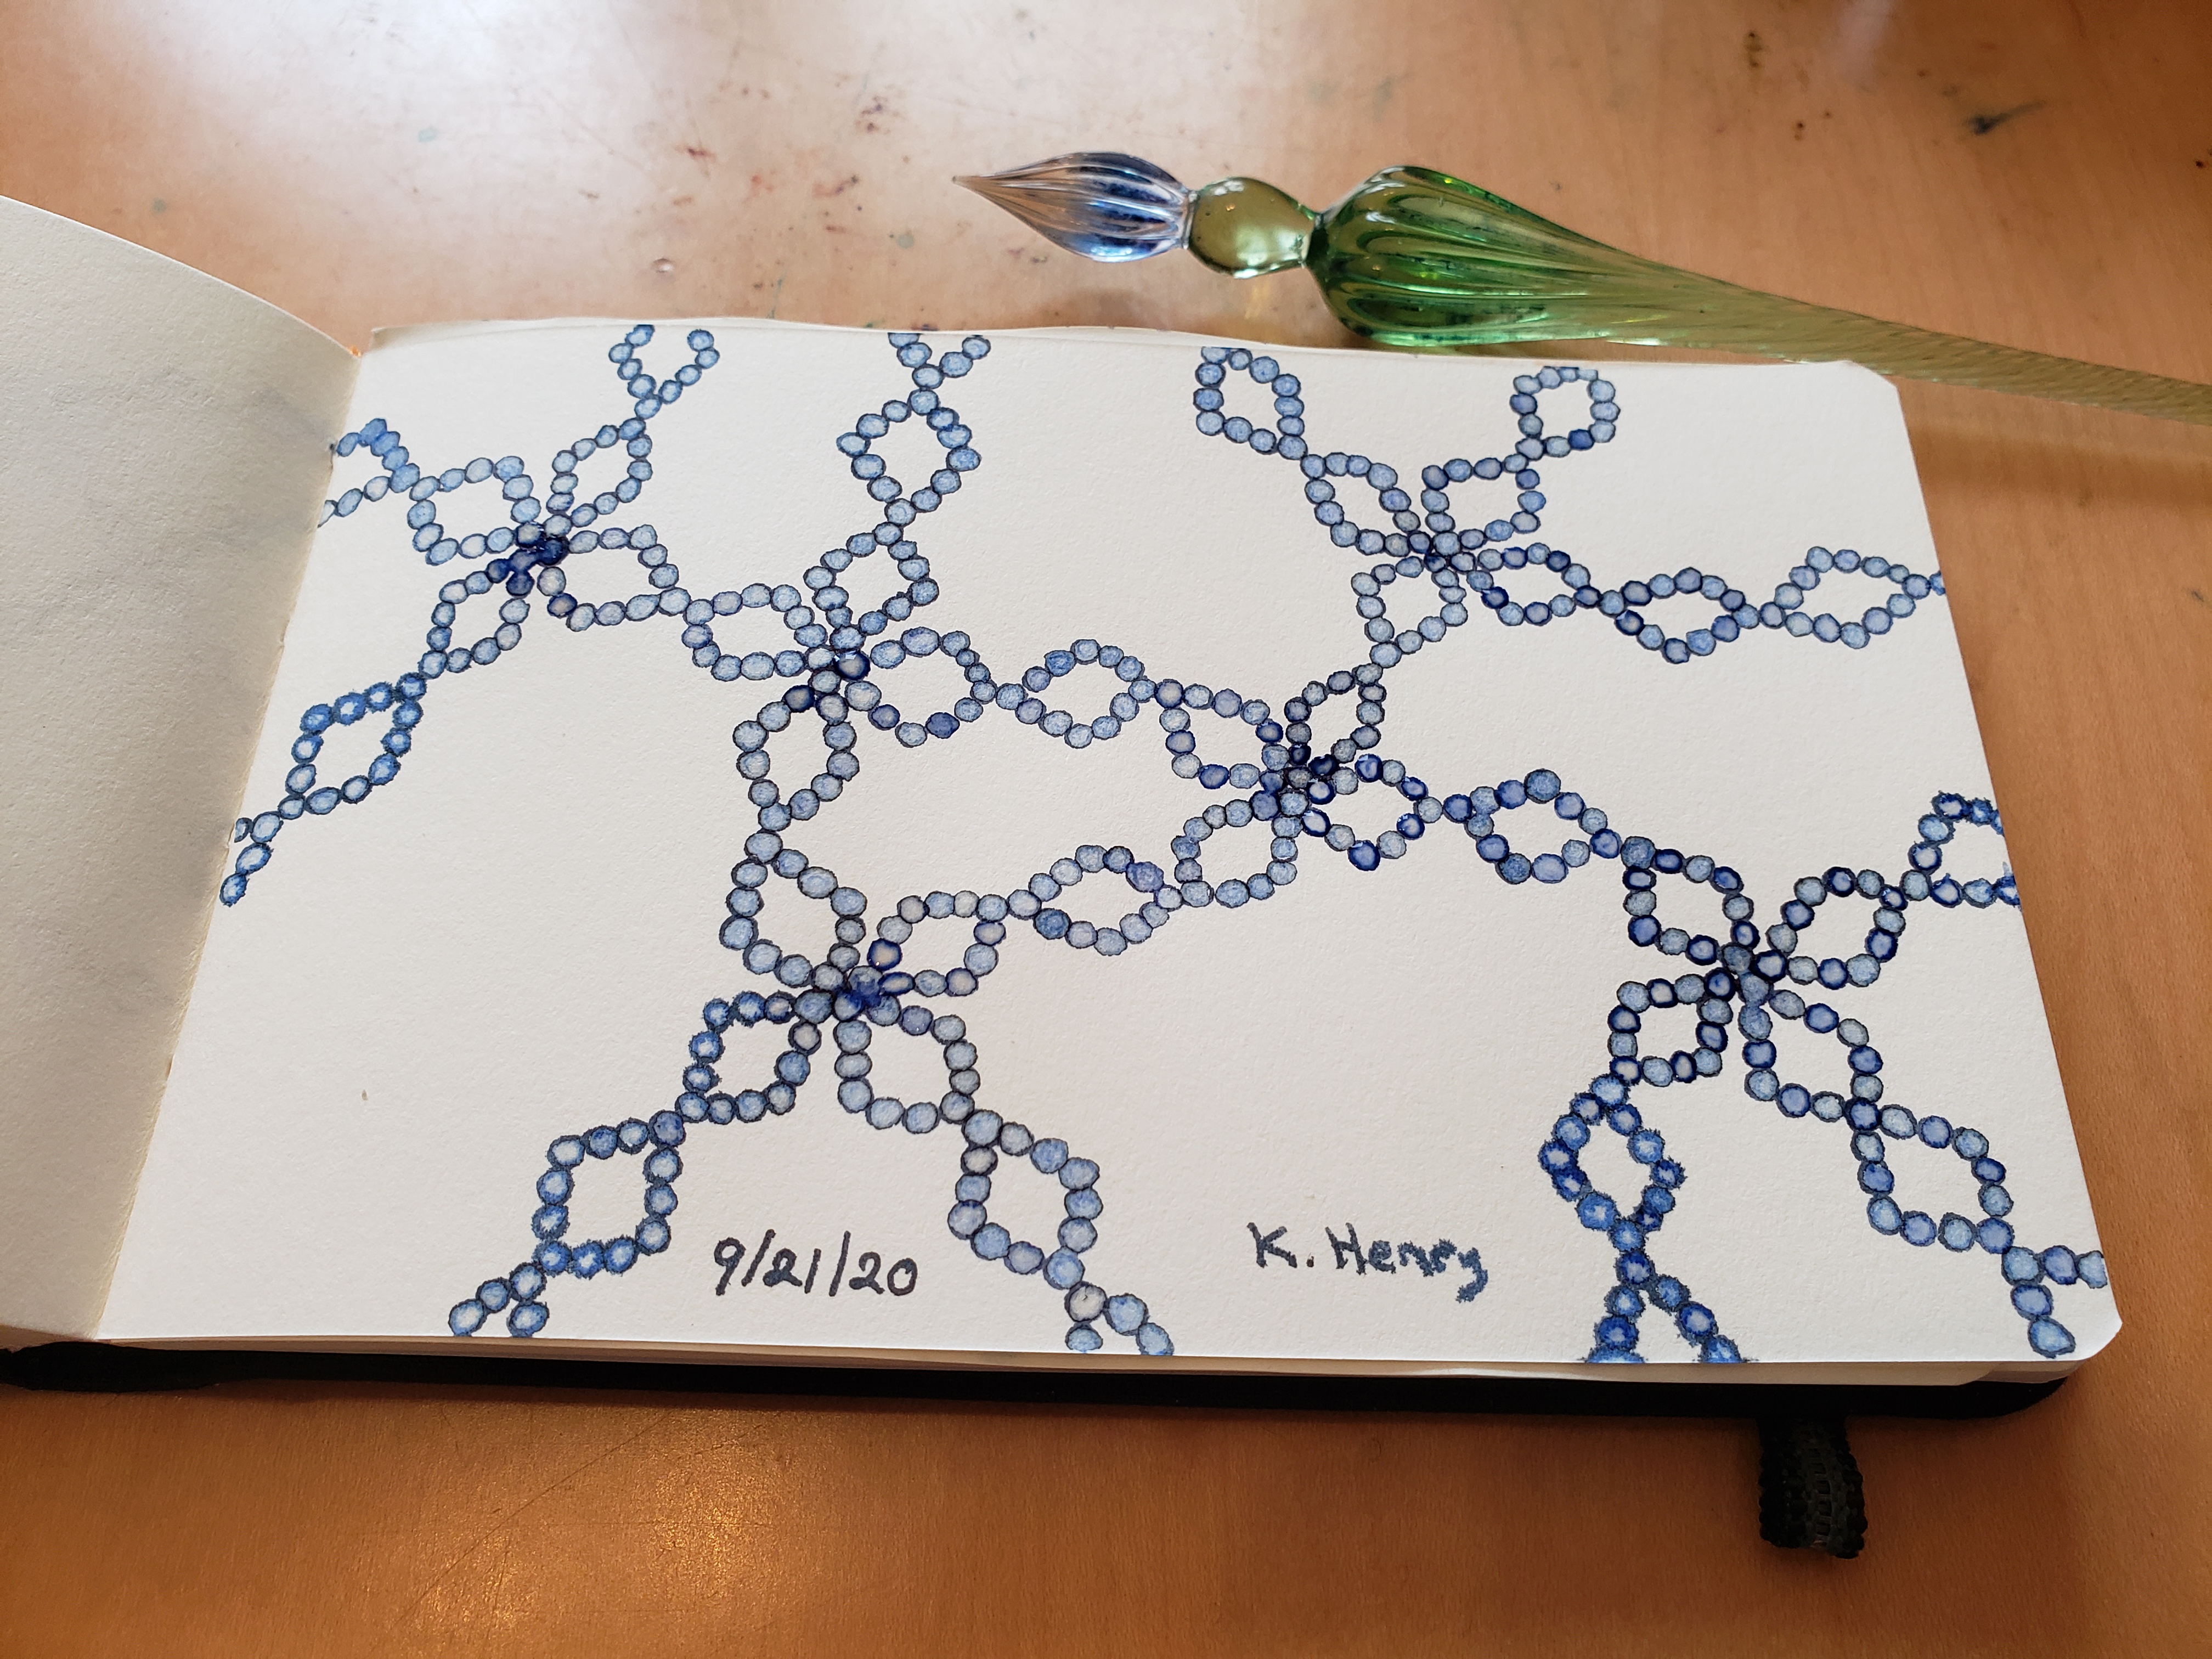 9/21/20
K. Henry